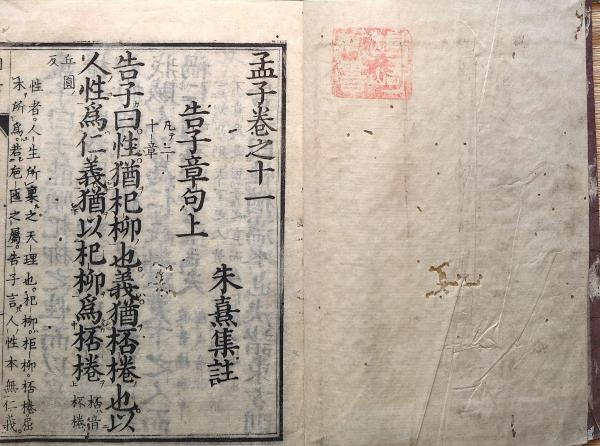 孟子卷之十一
告子章句上
凡二十章
朱熹集註
告子曰性猶杞柳也義猶桮棬也以
人性爲仁義猶以杞柳爲桮棬
桮音
杯棬
丘圓
反
性者人生所稟之天理也杞柳柜柳桮棬屈
木所爲若巵匜之屬告子言人性本無仁義